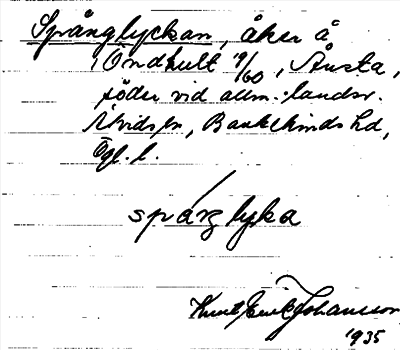 Språnglyckan, åker å
Öndkult 9/60, Årsta,
söder vid allm. landsv.
Åtvids sn, Bankekinds hd,
Ögl. l.
spår̷glyka
Knut Erik Johansson
1935